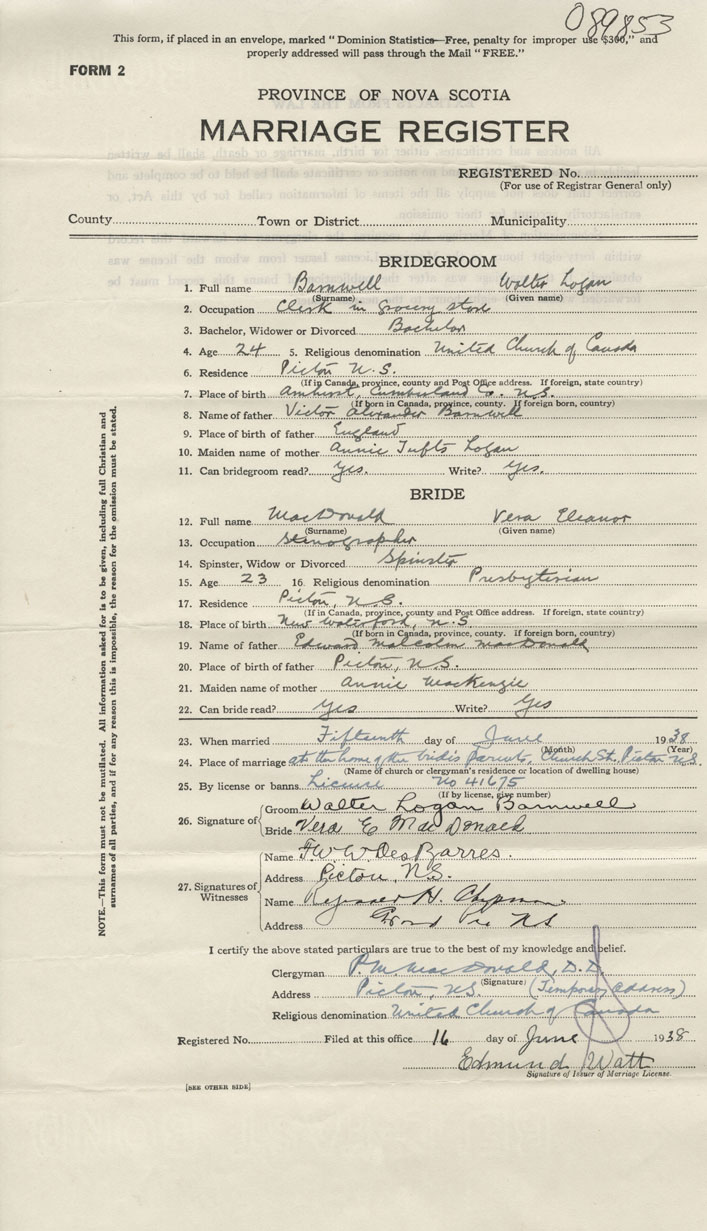 089853
This form, if placed in an envelope, marked "Dominion Statistics—Free, penalty for improper use $300," and
properly addressed will pass through the Mail "FREE."
FORM 2
PROVINCE OF NOVA SCOTIA
MARRIAGE REGISTER
REGISTERED No.
(For use of Registrar General only)
County Town or District Municipality
BRIDEGROOM
1. Full name Barnwell Walter Logan
(Surname) (Given name)
2. Occupation Clerk in grocery store
3. Bachelor, Widower or Divorced Bachelor
4. Age 24 5. Religious denomination United Church of Canada
6. Residence Pictou N.S.
(If in Canada, province, county and Post Office address. If foreign, state country)
7. Place of birth Amherst, Cumberland Co. N.S.
(If born in Canada, province, county. If foreign born, country)
8. Name of father Victor Alexander Barnwell
9. Place of birth of father England
10. Maiden name of mother Annie Tufts Logan
11. Can bridegroom read? Yes. Write? Yes.
BRIDE
12. Full name MacDonald Vera Eleanor
(Surname) (Given name)
13. Occupation Stenographer
14. Spinster, Widow or Divorced Spinster
15. Age 23 16. Religious denomination Presbyterian
17. Residence Pictou, N.S.
(If in Canada, province, county and Post Office address. If foreign, state country)
18. Place of birth New Waterford, N.S.
(If born in Canada, province, county. If foreign born, country)
19. Name of father Edward Malcolm MacDonald
20. Place of birth of father Pictou, N.S.
21. Maiden name of mother Annie MacKenzie
22. Can bride read? Yes Write? Yes
23. When married Fifteenth day of June 1938
(Month) (Year)
24. Place of marriage at the home of the bride's parents, Church St, Pictou N.S.
(Name of church or clergyman's residence or location of dwelling house)
25. By license or banns License No 41675
(If by license, give number)
26. Signature of Groom Walter Logan Barnwell
Bride Vera E MacDonald
27. Signatures of Witnesses
Name F.W.W. DesBarres.
Address Pictou, N.S.
Name H. Chipman
Address Grand Pré N.S
I certify the above stated particulars are true to the best of my knowledge and belief.
Clergyman P.M. MacDonald, D.D.
(Signature)
Address Pictou, N.S. (Temporary address)
Religious denomination United Church of Canada
Registered No. Filed at this office 16 day of June 1938
Edmund Watt
Signature of Issuer of Marriage License.
[SEE OTHER SIDE]
NOTE.—This form must not be mutilated. All information asked for is to be given, including full Christian and
surnames of all parties, and if for any reason this is impossible, the reason for the omission must be stated.